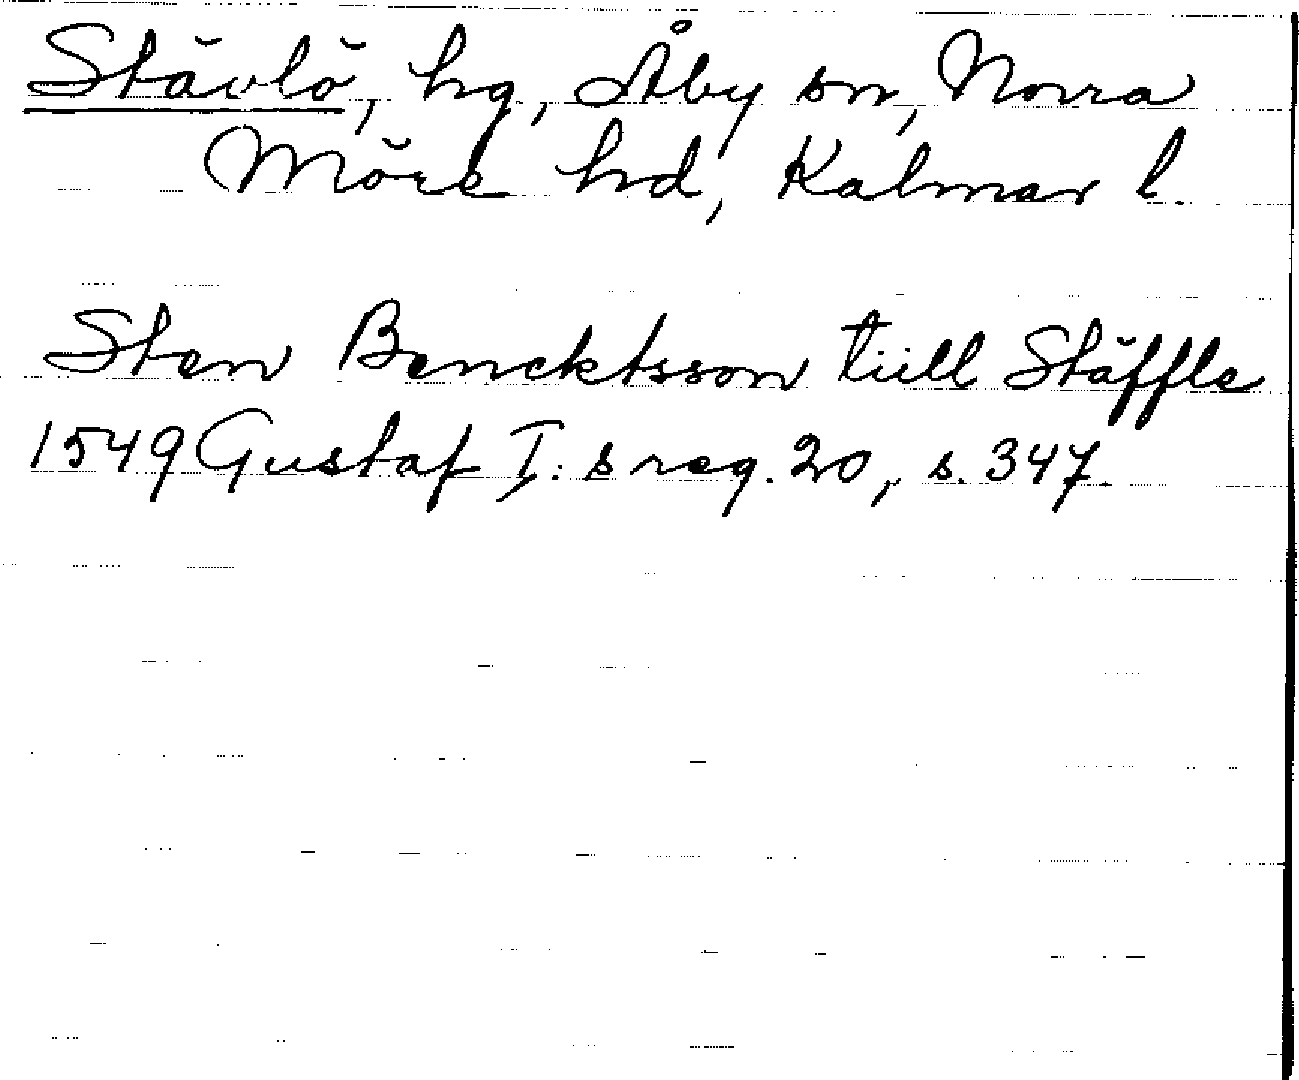 Stävlö, hg, Åby sn, Norra
Möre hd, Kalmar l.
Sten Bencktsson tiill Stäffle
1549 Gustaf I:s reg. 20, s. 347.